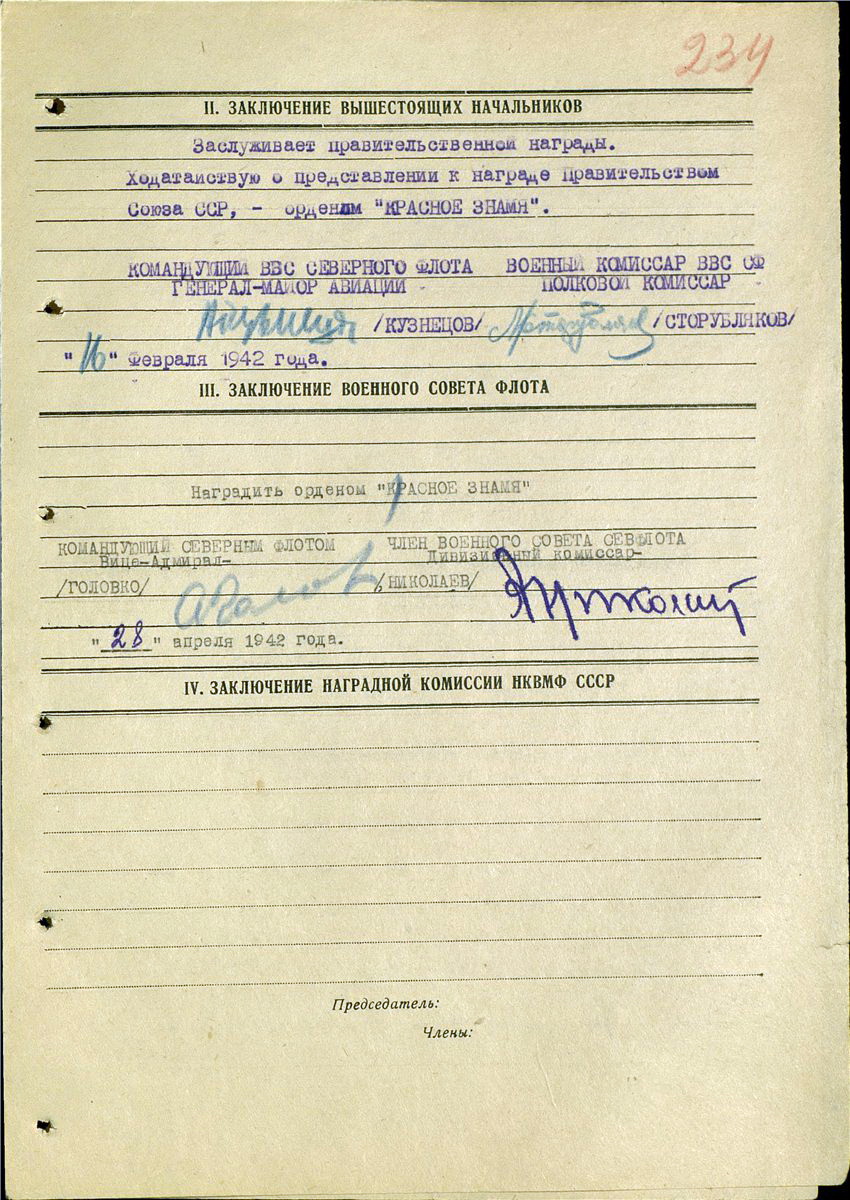 234
II. ЗАКЛЮЧЕНИЕ ВЫШЕСТОЯЩИХ НАЧАЛЬНИКОВ
Заслуживает правительственной награды.
Ходатайствую о представлении к награде Правительством
Союза ССР, - орденом "КРАСНОЕ ЗНАМЯ".
КОМАНДУЮЩИЙ ВВС СЕВЕРНОГО ФЛОТА ВОЕННЫЙ КОМИССАР ВВС СФ
ГЕНЕРАЛ-МАЙОР АВИАЦИИ - ПОЛКОВОЙ КОМИССАР
/КУЗНЕЦОВ/ /СТОРУБЛЯКОВ/
"16" Февраля 1942 года.
III. ЗАКЛЮЧЕНИЕ ВОЕННОГО СОВЕТА ФЛОТА
Наградить орденом "КРАСНОЕ ЗНАМЯ"
КОМАНДУЮЩИЙ СЕВЕРНЫМ ФЛОТОМ ЧЛЕН ВОЕННОГО СОВЕТА СЕВФЛОТА
Вице-Адмирал- Дивизионный комиссар-
/ГОЛОВКО/ /НИКОЛАЕВ/
"28" апреля 1942 года.
IV. ЗАКЛЮЧЕНИЕ НАГРАДНОЙ КОМИССИИ НКВМФ СССР
Председатель:
Члены: